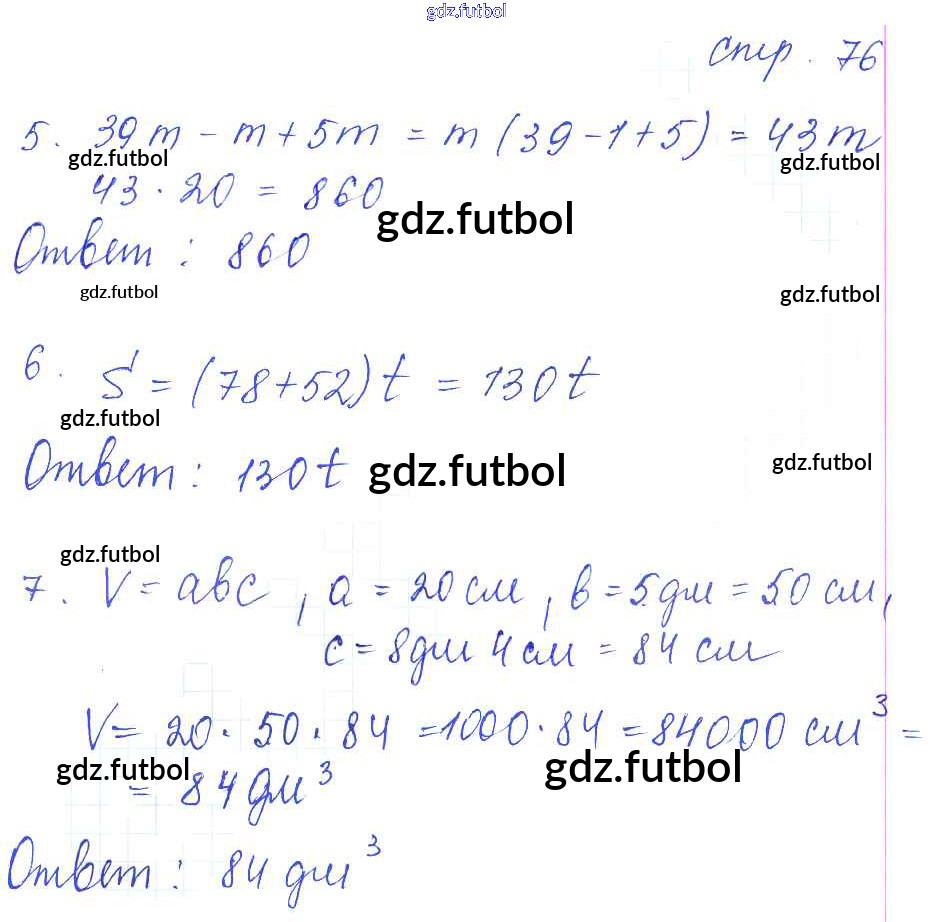 gdz.futbol
стр. 76
5. 39m - m + 5m = m (39-1+5) = 43m
gdz.futbol gdz.futbol
43 · 20 = 860
gdz.futbol
Ответ : 860
gdz.futbol gdz.futbol
6. S = (78+52)t = 130t
gdz.futbol
Ответ : 130t
gdz.futbol gdz.futbol
gdz.futbol
7. V = abc , a = 20 см , b = 5 дм = 50 см,
c = 8 дм 4 см = 84 см
V = 20 · 50 · 84 = 1000 · 84 = 84000 см³ =
gdz.futbol gdz.futbol
= 84 дм³
Ответ : 84 дм³